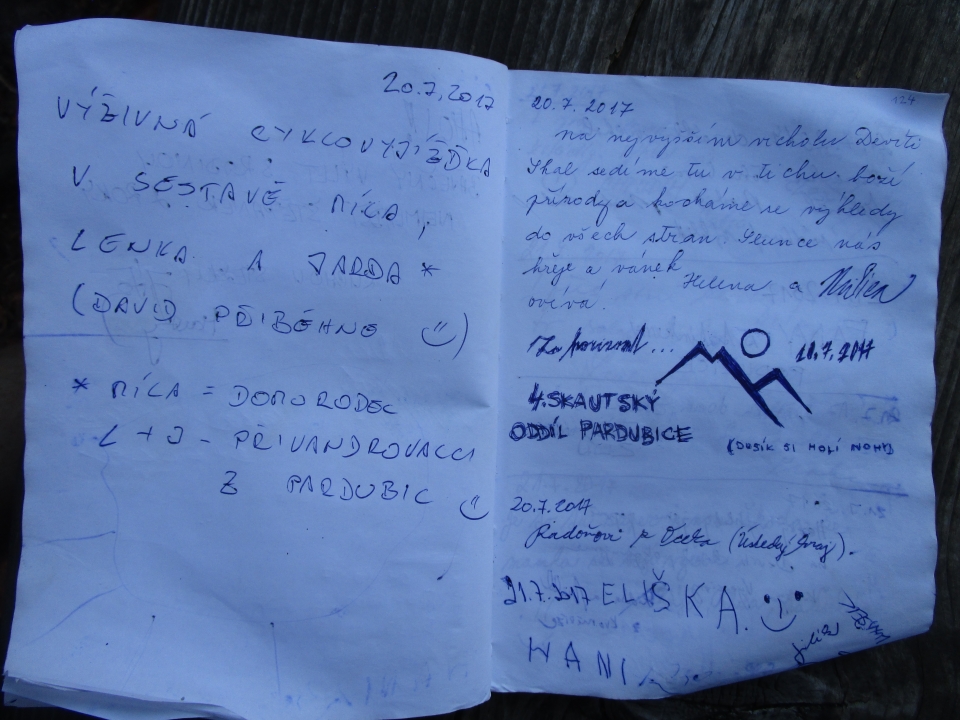 20.7.2017
VÝŽIVNÁ CYKLOVYJÍŽĎKA
V SESTAVĚ MÍLA,
LENKA A JARDA *
(DAVID PŘIBĚHNE :))
* MÍLA = DOMORODEC
L + J - PŘIVANDROVALCI
Z PARDUBIC :)
124
20.7.2017
na nejvyšším vrcholu Devíti
Skal sedíme tu v tichu boží
přírody a kocháme se výhledy
do všech stran. Slunce nás
hřeje a vánek
ovívá. Helena a
Za pozornost...
18.7.2017
4.SKAUTSKÝ
ODDÍL PARDUBICE
(DUSÍK SI HOLÍ NOHY)
20.7.2017
z Oseka (Ústecký kraj).
21.7.2017 ELIŠKA. :)
HANI